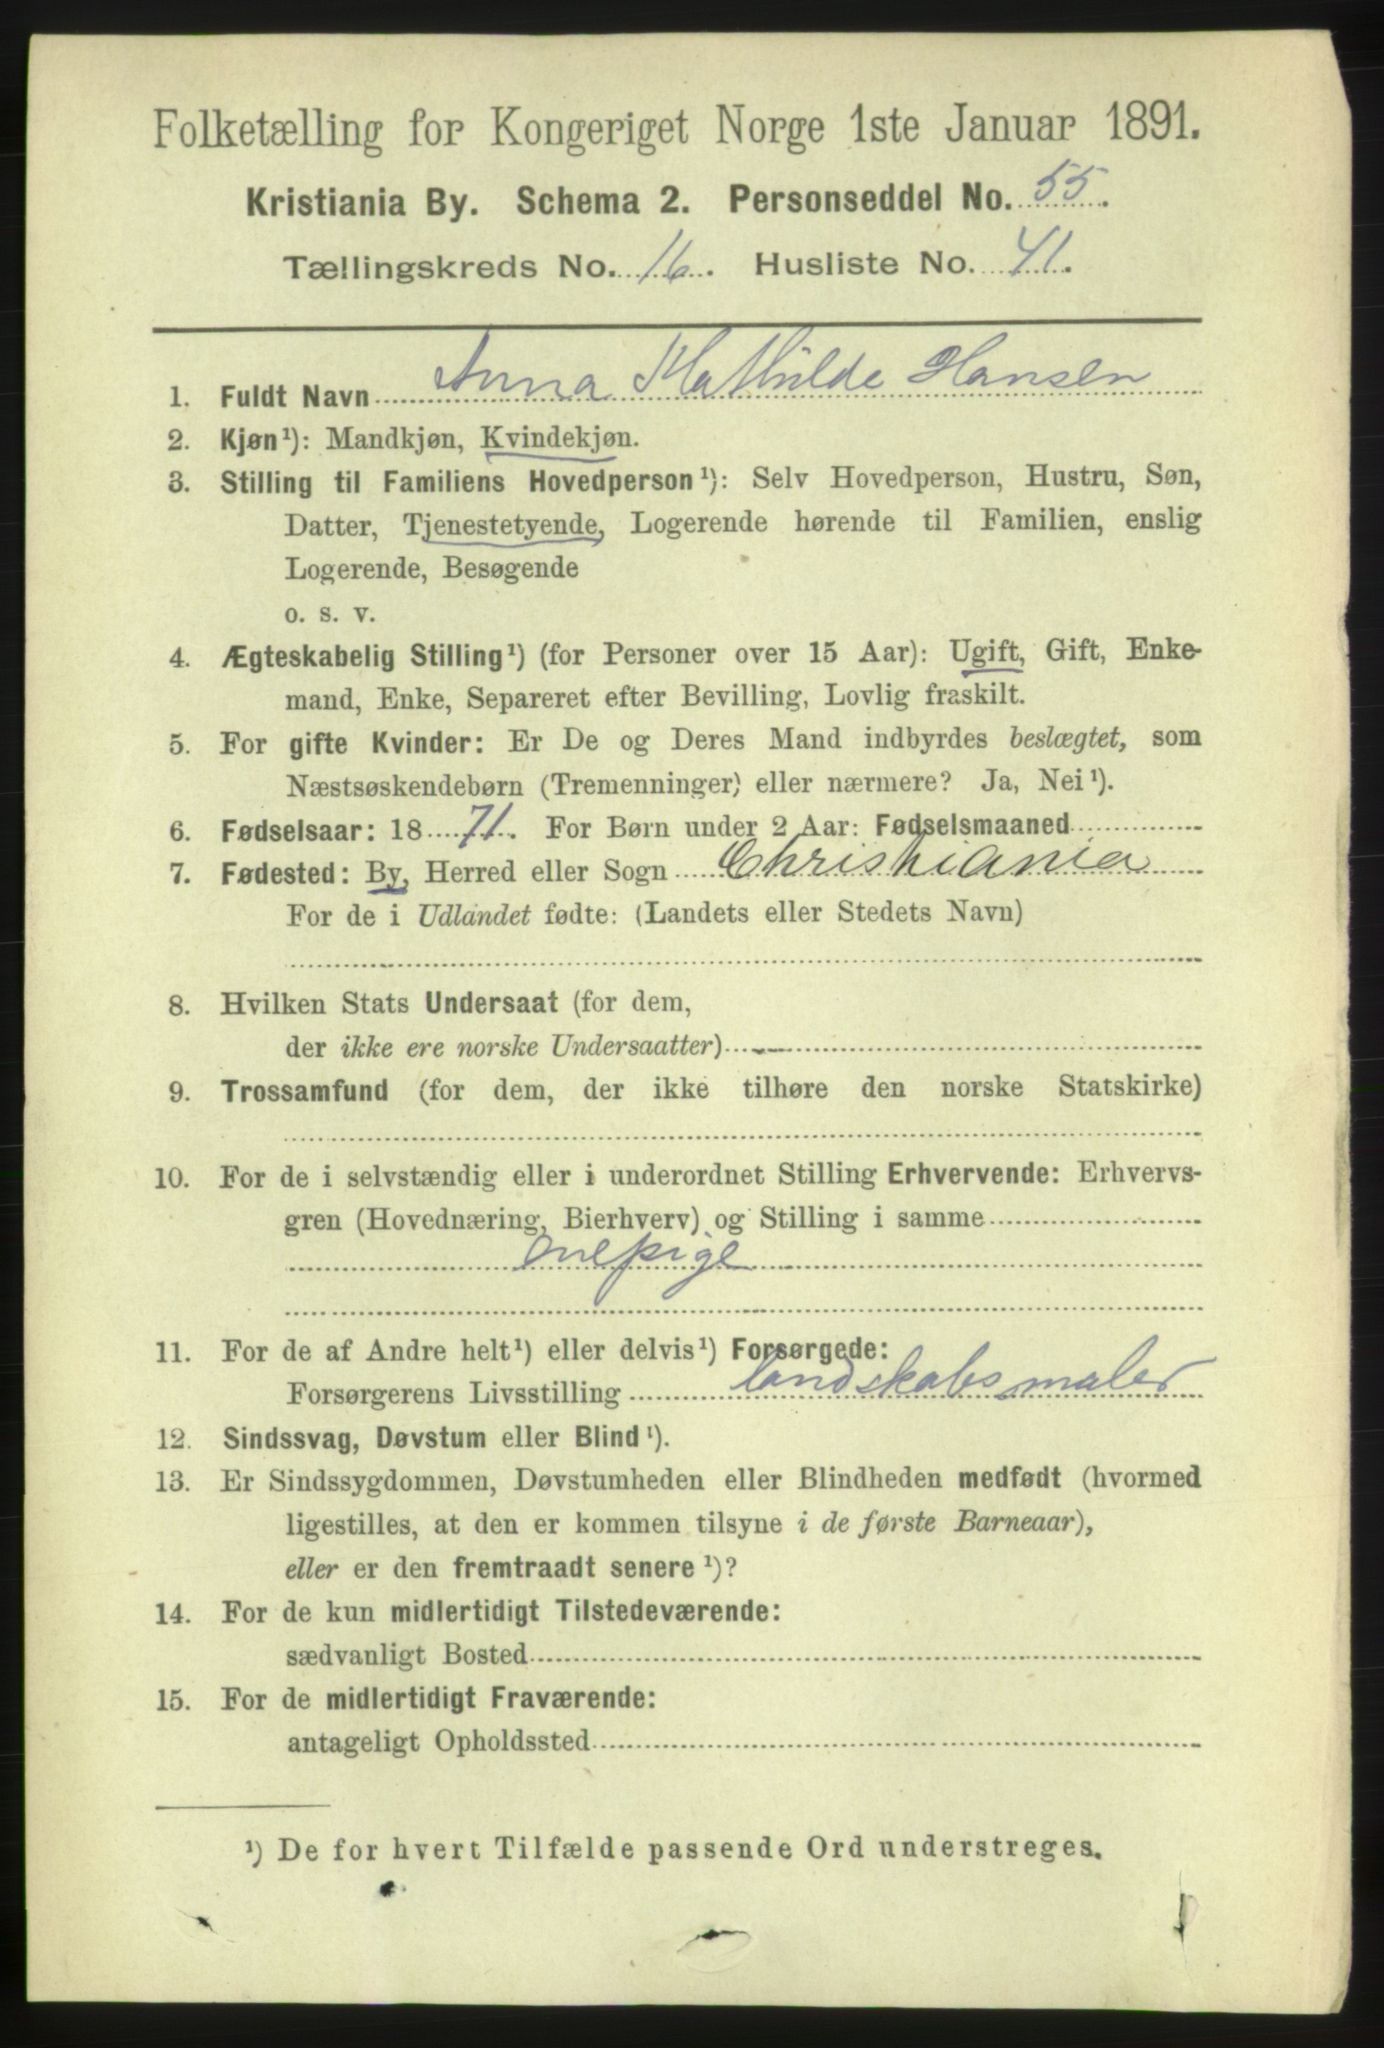 Folketælling for Kongeriget Norge 1ste Januar 1891.
Kristiania By. Schema 2. Personseddel No. 55.
Tællingskreds No. 16. Husliste No. 41.
1. Fuldt Navn Anna Mathilde Hansen
2. Kjøn¹): Mandkjøn, Kvindekjøn.
3. Stilling til Familiens Hovedperson¹): Selv Hovedperson, Hustru, Søn,
Datter, Tjenestetyende, Logerende hørende til Familien, enslig
Logerende, Besøgende
o. s. v.
4. Ægteskabelig Stilling¹) (for Personer over 15 Aar): Ugift, Gift, Enke-
mand, Enke, Separeret efter Bevilling, Lovlig fraskilt.
5. For gifte Kvinder: Er De og Deres Mand indbyrdes beslægtet, som
Næstsøskendebørn (Tremenninger) eller nærmere? Ja, Nei¹).
6. Fødselsaar: 1871. For Børn under 2 Aar: Fødselsmaaned
7. Fødested: By, Herred eller Sogn Christiania
For de i Udlandet fødte: (Landets eller Stedets Navn)
8. Hvilken Stats Undersaat (for dem,
der ikke ere norske Undersaatter)
9. Trossamfund (for dem, der ikke tilhøre den norske Statskirke)
10. For de i selvstændig eller i underordnet Stilling Erhvervende: Erhvervs-
gren (Hovednæring, Bierhverv) og Stilling i samme
Enepige
11. For de af Andre helt¹) eller delvis¹) Forsørgede:
Forsørgerens Livsstilling landskabsmaler
12. Sindssvag, Døvstum eller Blind¹).
13. Er Sindssygdommen, Døvstumheden eller Blindheden medfødt (hvormed
ligestilles, at den er kommen tilsyne i de første Barneaar),
eller er den fremtraadt senere¹)?
14. For de kun midlertidigt Tilstedeværende:
sædvanligt Bosted
15. For de midlertidigt Fraværende:
antageligt Opholdssted
¹) De for hvert Tilfælde passende Ord understreges.